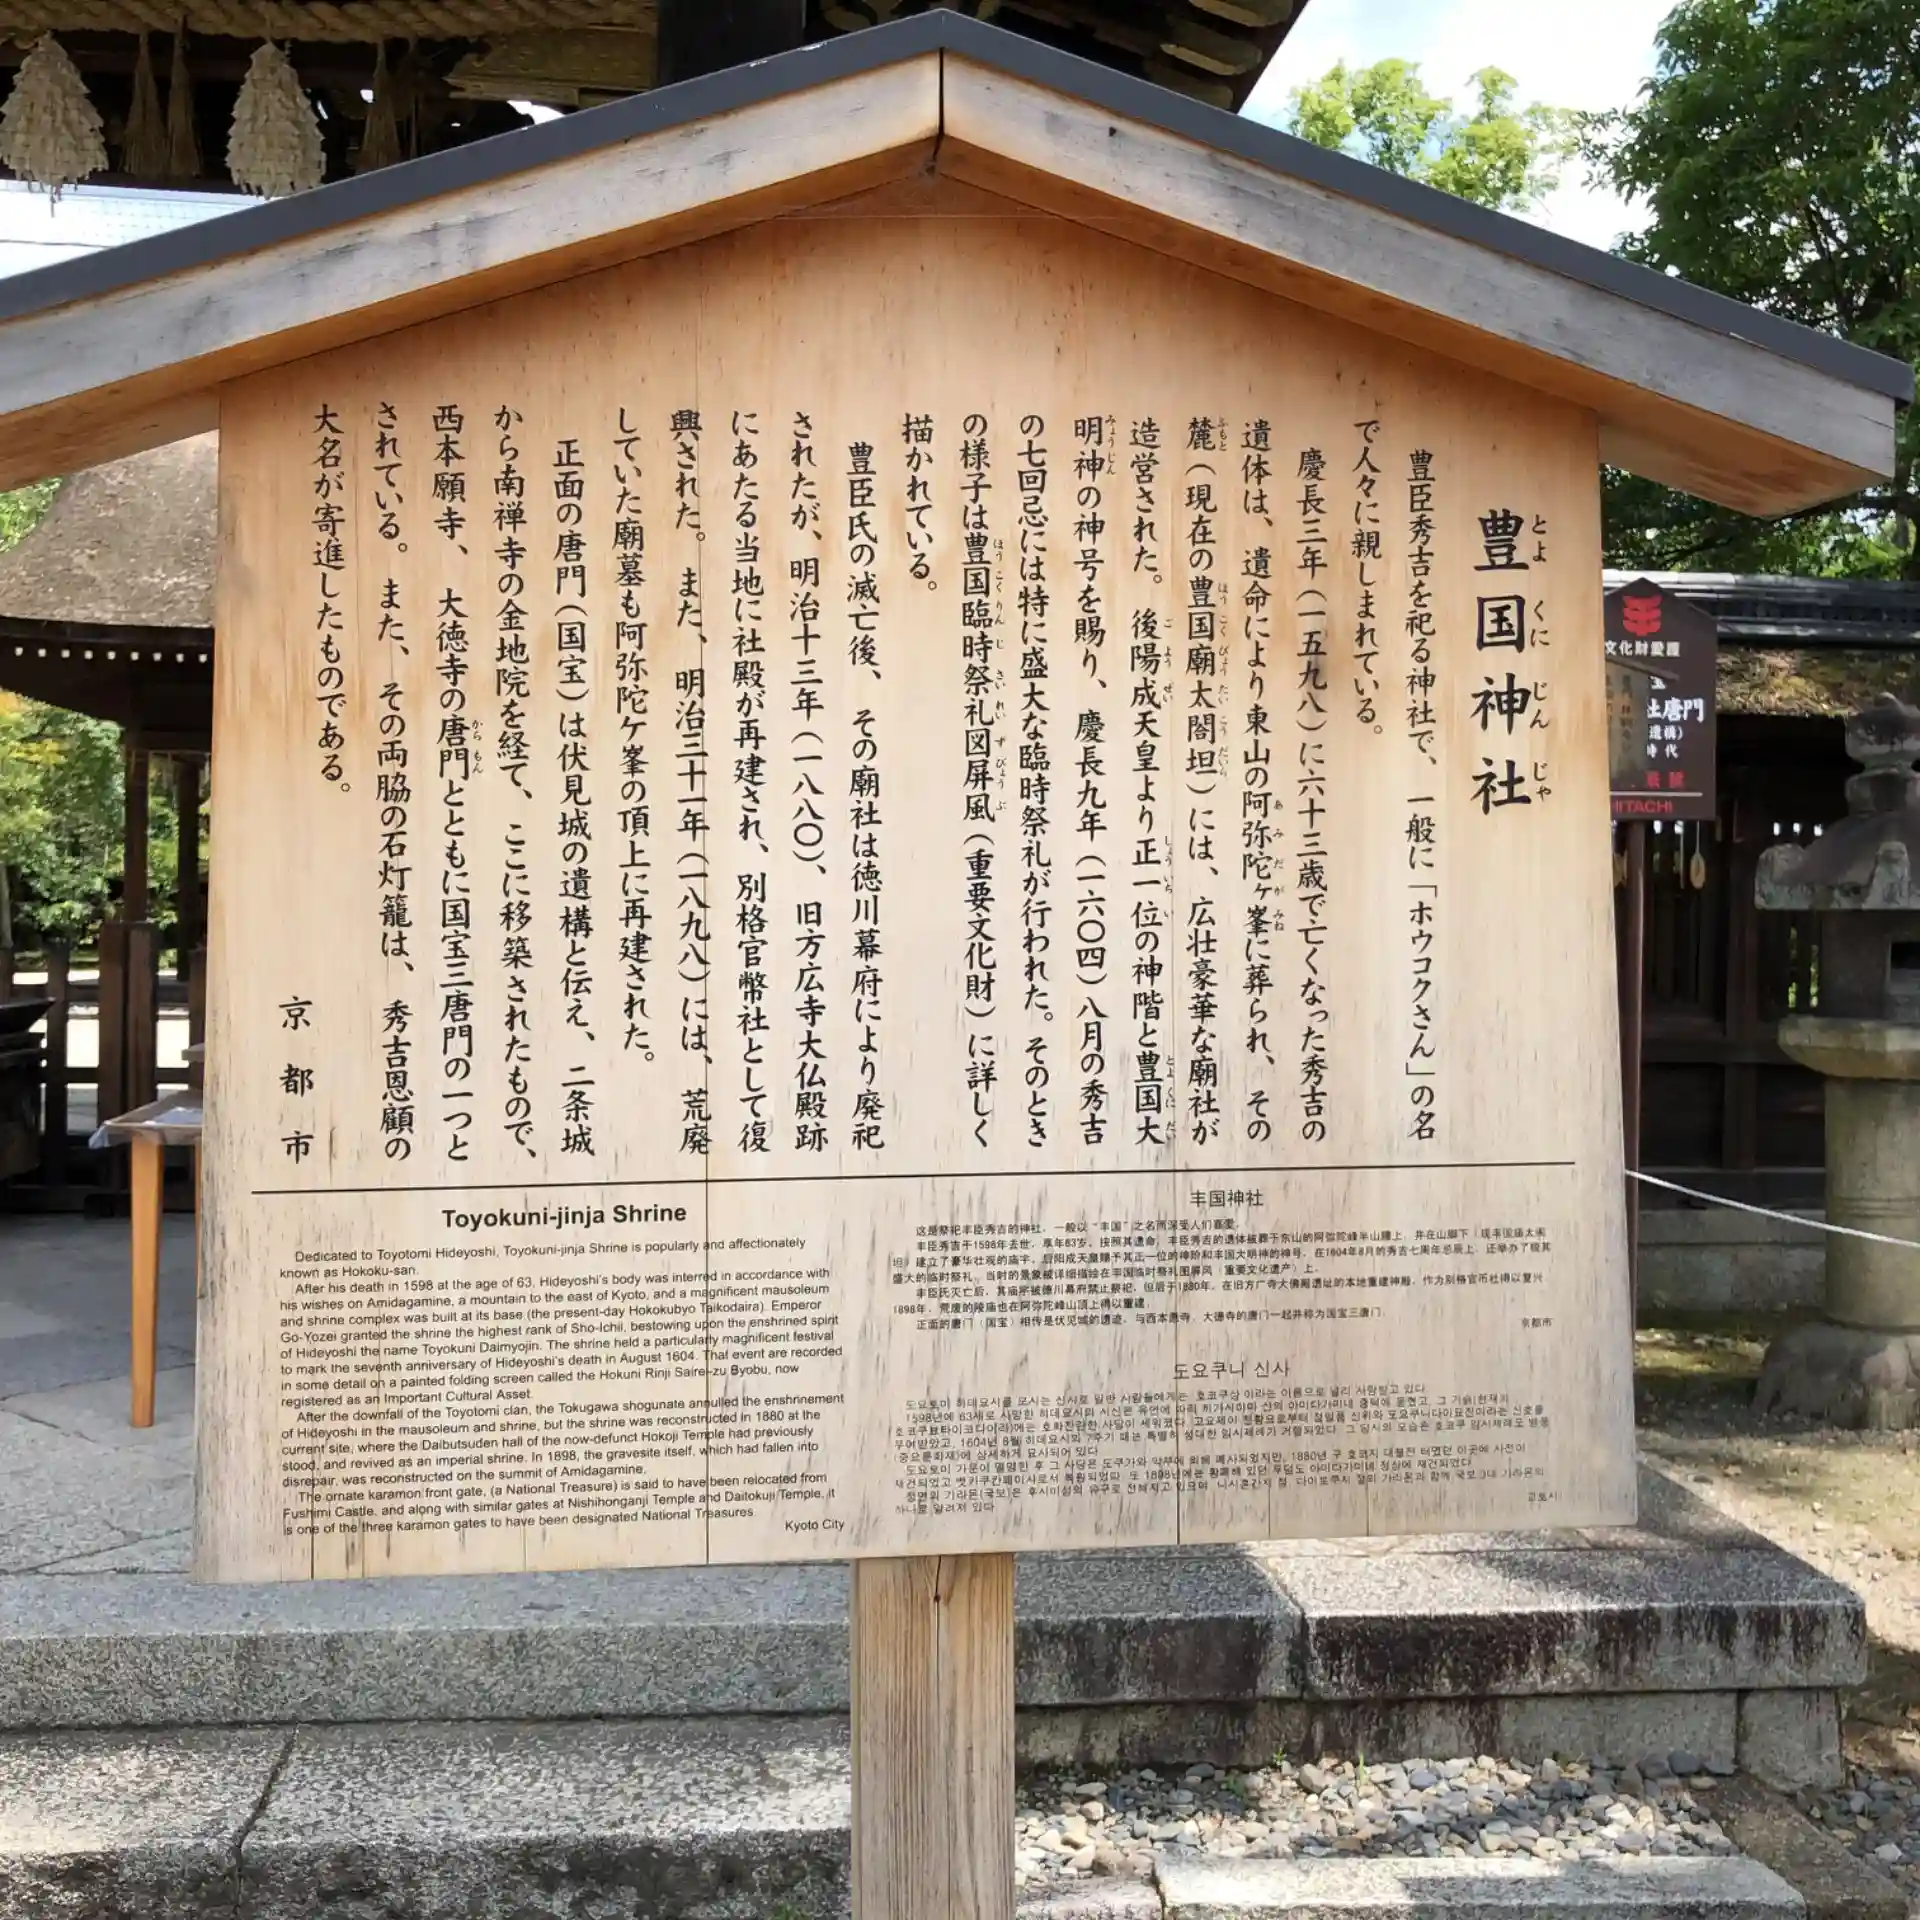 豊国神社
とよくにじんじゃ
豊臣秀吉を祀る神社で、一般に「ホウコクさん」の名
で人々に親しまれている。
慶長三年(一五九八)に六十三歳で亡くなった秀吉の
遺体は、遺命により東山の阿弥陀ヶ峯に葬られ、その
麓(現在の豊国廟太閤坦)には、広壮豪華な廟社が
造営された。後陽成天皇より正一位の神階と豊国大
明神の神号を賜り、慶長九年(一六〇四)八月の秀吉
の七回忌には特に盛大な臨時祭礼が行われた。そのとき
の様子は豊国臨時祭礼図屏風(重要文化財)に詳しく
描かれている。
豊臣氏の滅亡後、その廟社は徳川幕府により廃祀
されたが、明治十三年(一八八〇)、旧方広寺大仏殿跡
にあたる当地に社殿が再建され、別格官幣社として復
興された。また、明治三十一年(一八九八)には、荒廃
していた廟墓も阿弥陀ケ峯の頂上に再建された。
正面の唐門(国宝)は伏見城の遺構と伝え、二条城
から南禅寺の金地院を経て、ここに移築されたもので、
西本願寺、大徳寺の唐門とともに国宝三唐門の一つと
されている。また、その両脇の石灯籠は、秀吉恩顧の
大名が寄進したものである。
京都市
Toyokuni-jinja Shrine
Dedicated to Toyotomi Hideyoshi, Toyokuni-jinja Shrine is popularly and affectionately
known as Hokoku-san.
After his death in 1598 at the age of 63, Hideyoshi's body was interred in accordance with
his wishes on Amidagamine, a mountain to the east of Kyoto, and a magnificent mausoleum
and shrine complex was built at its base (the present-day Hokokubyo Taikodaira). Emperor
Go-Yozei granted the shrine the highest rank of Sho-Ichii, bestowing upon the enshrined spirit
of Hideyoshi the name Toyokuni Daimyojin. The shrine held a particularly magnificent festival
to mark the seventh anniversary of Hideyoshi's death in August 1604. That event are recorded
in some detail on a painted folding screen called the Hokuni Rinji Sairei-zu Byobu, now
registered as an Important Cultural Asset.
After the downfall of the Toyotomi clan, the Tokugawa shogunate annulled the enshrinement
of Hideyoshi in the mausoleum and shrine, but the shrine was reconstructed in 1880 at the
current site, where the Daibutsuden hall of the now-defunct Hokoji Temple had previously
stood, and revived as an imperial shrine. In 1898, the gravesite itself, which had fallen into
disrepair, was reconstructed on the summit of Amidagamine.
The ornate karamon front gate, (a National Treasure) is said to have been relocated from
Fushimi Castle, and along with similar gates at Nishihonganji Temple and Daitokuji Temple, it
is one of the three karamon gates to have been designated National Treasures.
Kyoto City
丰国神社
这是祭祀丰臣秀吉的神社，一般以“丰国”之名而深受人们喜爱。
丰臣秀吉于1598年去世，享年63岁。按照其遗命，丰臣秀吉的遗体被葬于东山的阿弥陀峰半山腰上，并在山脚下（现丰国庙太阁
坦）建立了豪华壮观的庙宇，后阳成天皇赐予其正一位的神阶和丰国大明神的神号。在1604年8月的秀吉七周年忌辰上，还举办了极其
盛大的临时祭礼。当时的景象被详细描绘在丰国临时祭礼图屏风（重要文化遗产）上。
丰臣氏灭亡后，其庙宇被德川幕府禁止祭祀，但后于1880年，在旧方广寺大佛殿遗址的本地重建神殿，作为别格官币社得以复兴
1898年，荒废的陵庙也在阿弥陀峰山顶上得以重建。
正面的唐门（国宝）相传是伏见城的遗迹，与西本愿寺、大德寺的唐门一起并称为国宝三唐门。
京都市
도요쿠니 신사
도요토미 히데요시를 모시는 신사로 일반 사람들에게는 호코쿠상 이라는 이름으로 널리 사랑받고 있다.
교토시
文化財愛護
社唐門
時代
HITACHI